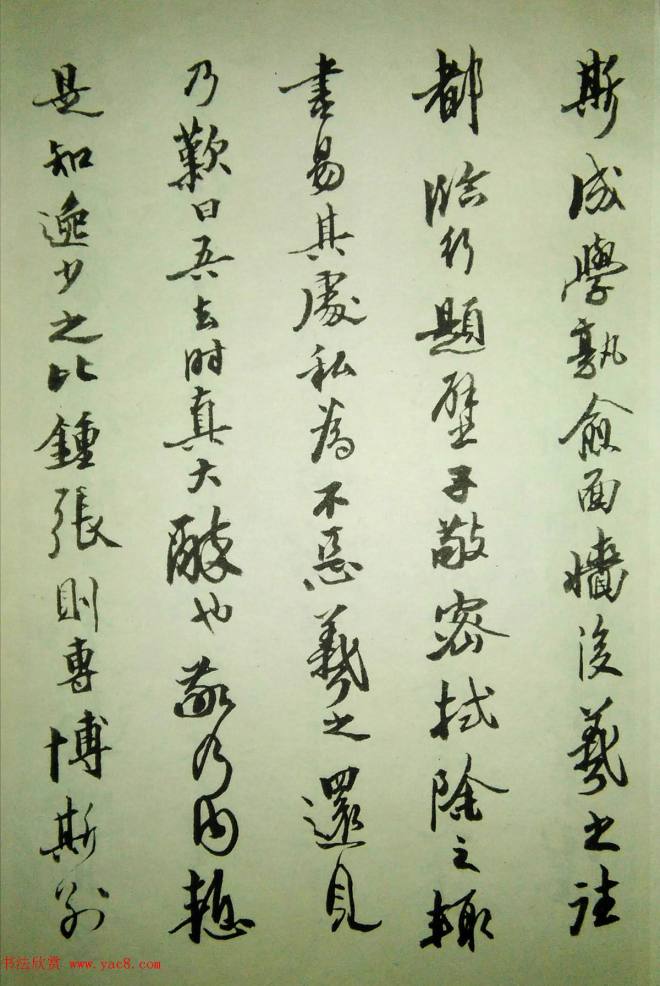 斯成學孰愈面墻後羲之往
都臨行題壁子敬密拭除之輙
書易其處私為不惡羲之還見
乃歎曰吾去时真大醉也敬乃内慙
是知逸少之比鍾張則專博斯別
书法欣赏 www.yac8.com